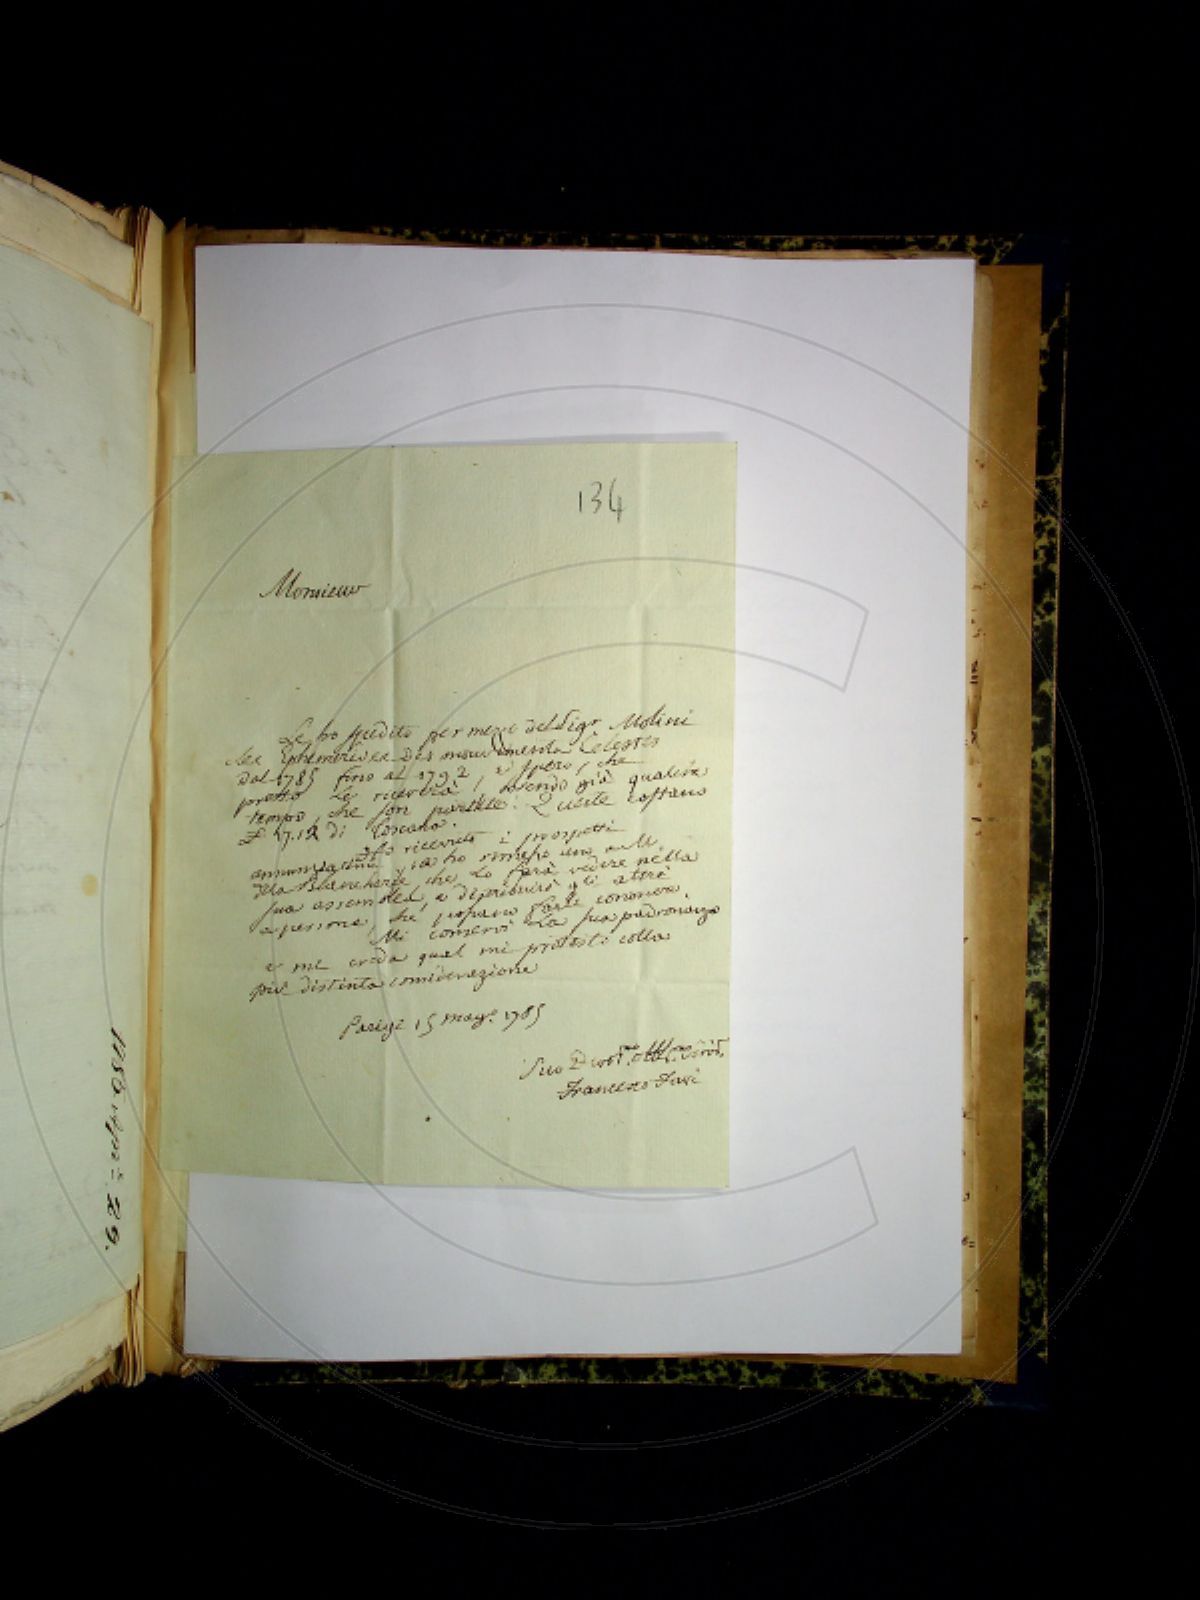 134
Monsieur
Le ho spedito per mezzo del Sigr Molini
les Ephemerides des mouvements Celestes
dal 1785 fino al 1792, e spero, che
presto le riceverà, essendo già qualche
tempo, che son partite. Queste costano
di Toscana.
Ho ricevuto i prospetti
annunziatimi, ne ho rimesso uno a M.
della Blancherie che lo farà vedere nella
sua assemblea, e distribuirò gli altri
a persone, che possano farli conoscere.
Mi conservi la sua padronanza
e me creda qual mi protesto colla
più distinta considerazione
Parigi 15 magg. 1785
Suo
Francesco Favi
1780 29.